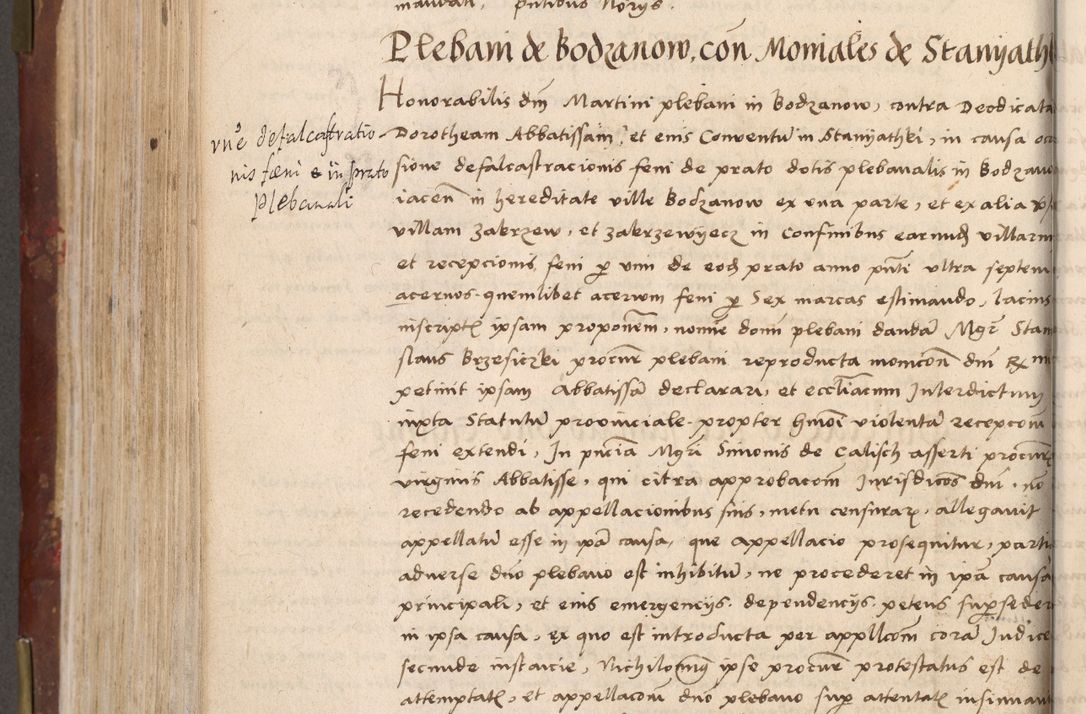 mandati, pntibus Norys.
Plebani de Bodzanow, con Moniales de Staniath
Honorabilis dni Martini plebani in Bodzanow, contra Deodicata
vnc defalcastratio
nis fæni e in prato
plebanali
Dorotheam Abbatissam, et eius Conventu in Staniathki, in causa occ
sione defalcastracionis feni de prato dotis plebanalis in Bodzano
iacen in hereditate ville Bodzanow ex vna parte, et ex alia
villam zakrzew, et zakrzewyecz in Confinibus earund villarum
et recepcionis feni p vim de eod prato anno pnti vltra septem
acervos quemlibet acervum feni p Sex marcas estimando, lacius
inscript ipsam proponem, nomine domi plebani dandam Mgr Stan
slaus Brzesiczki procur plebani reproducta monicon dni
petivit ipsam Abbatissa declarari, et eccliacum Interdictum
iuxta Statutu provinciale propter hmoi violentam recepcom
feni extendi, In pncia Mgri Simonis de Calisch asserti procur
virginis Abbatisse, qui citra approbacom Jurisdicois dni, non
recedendo ab appellacionibus suis, metu censurar, allegavit
appellatu esse in ipa causa, que appellacio prosequitur, parti
adverse dno plebano est inhibitu, ne procederet in ipa causa
principali, et eius emergencijs dependencijs petens supseder
in ipsa causa, ex quo est introducta per appllcom cora Judice
secunde instancie, Nichilominus ipse procur protestatus est de
attemptat, et appellacom dno plebano sup attentat insinuan